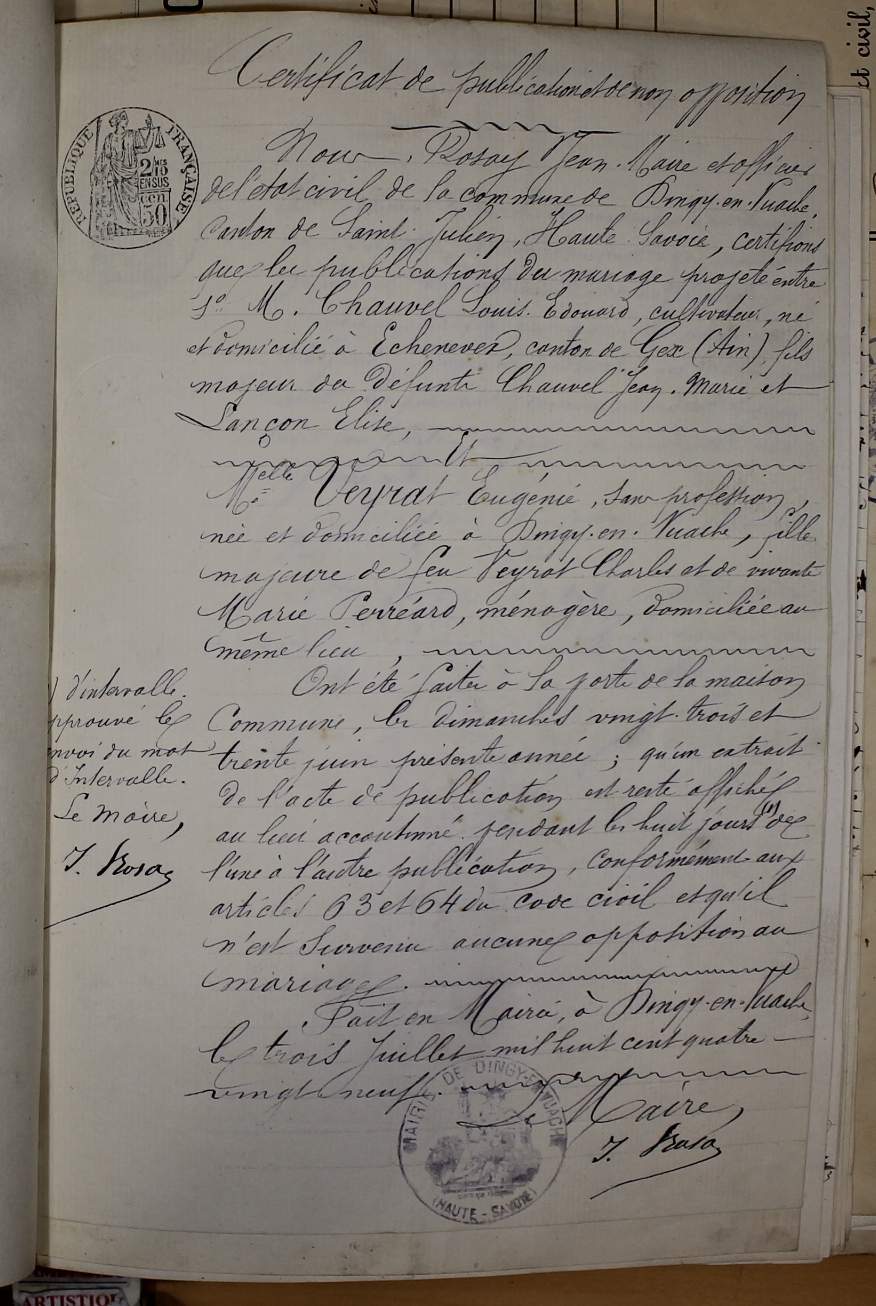 et civil,
Certificat de publication et de non opposition
RÉPUBLIQUE FRANÇAISE
2/10
EN SUS
50
Nous, Rosay Jean, Maire et officier
de l'état civil de la commune de Dingy-en-Vuache,
canton de Saint-Julien, Haute-Savoie, certifions
que les publications du mariage projeté entre
1º M. Chauvel Louis-Edouard, cultivateur, né
et domicilié à Echenevex, canton de Gex (Ain), fils
majeur de défunts Chauvel Jean-Marie et
Lançon Elise,
Et
Melle Veyrat Eugénie, sans profession,
née et domiciliée à Dingy-en-Vuache, fille
majeure de feu Veyrat Charles et de vivante
Marie Perréard, ménagère, domiciliée au
même lieu,
Ont été faites à la porte de la maison
Commune, les dimanches vingt-trois et
trente juin présente année ; qu'un extrait
de l'acte de publication est resté affiché
au lieu accoutumé pendant les huit jours (1) de
l'une à l'autre publication, conformément aux
articles 63 et 64 du code civil et qu'il
n'est survenu aucune opposition au
mariage.
Fait en Mairie, à Dingy-en-Vuache,
le trois Juillet mil huit cent quatre-
vingt neuf.
Le Maire,
J. Rosay
) d'intervalle.
pprouvé le
nvoi du mot
d'Intervalle.
Le Maire,
J. Rosay
MAIRIE DE DINGY-EN-VUACHE
(HAUTE-SAVOIE)
ARTISTIQU